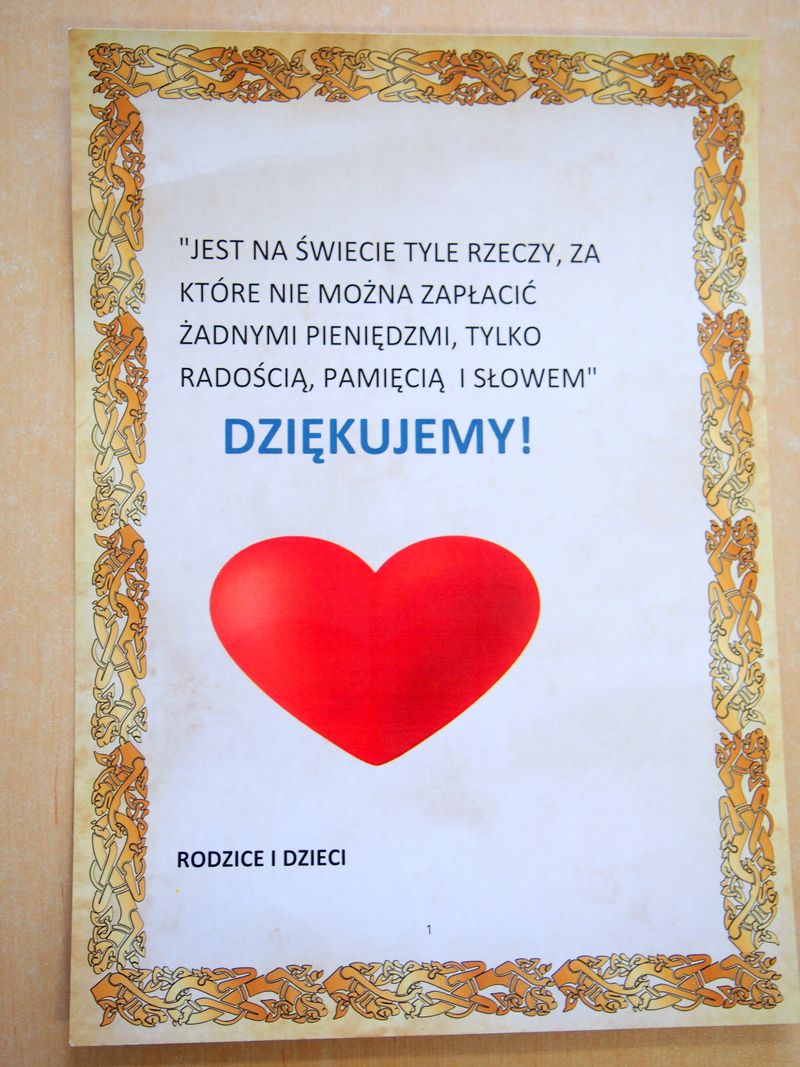 "JEST NA ŚWIECIE TYLE RZECZY, ZA
KTÓRE NIE MOŻNA ZAPŁACIĆ
ŻADNYMI PIENIĘDZMI, TYLKO
RADOŚCIĄ, PAMIĘCIĄ  I SŁOWEM"
DZIĘKUJEMY!
RODZICE I DZIECI
1